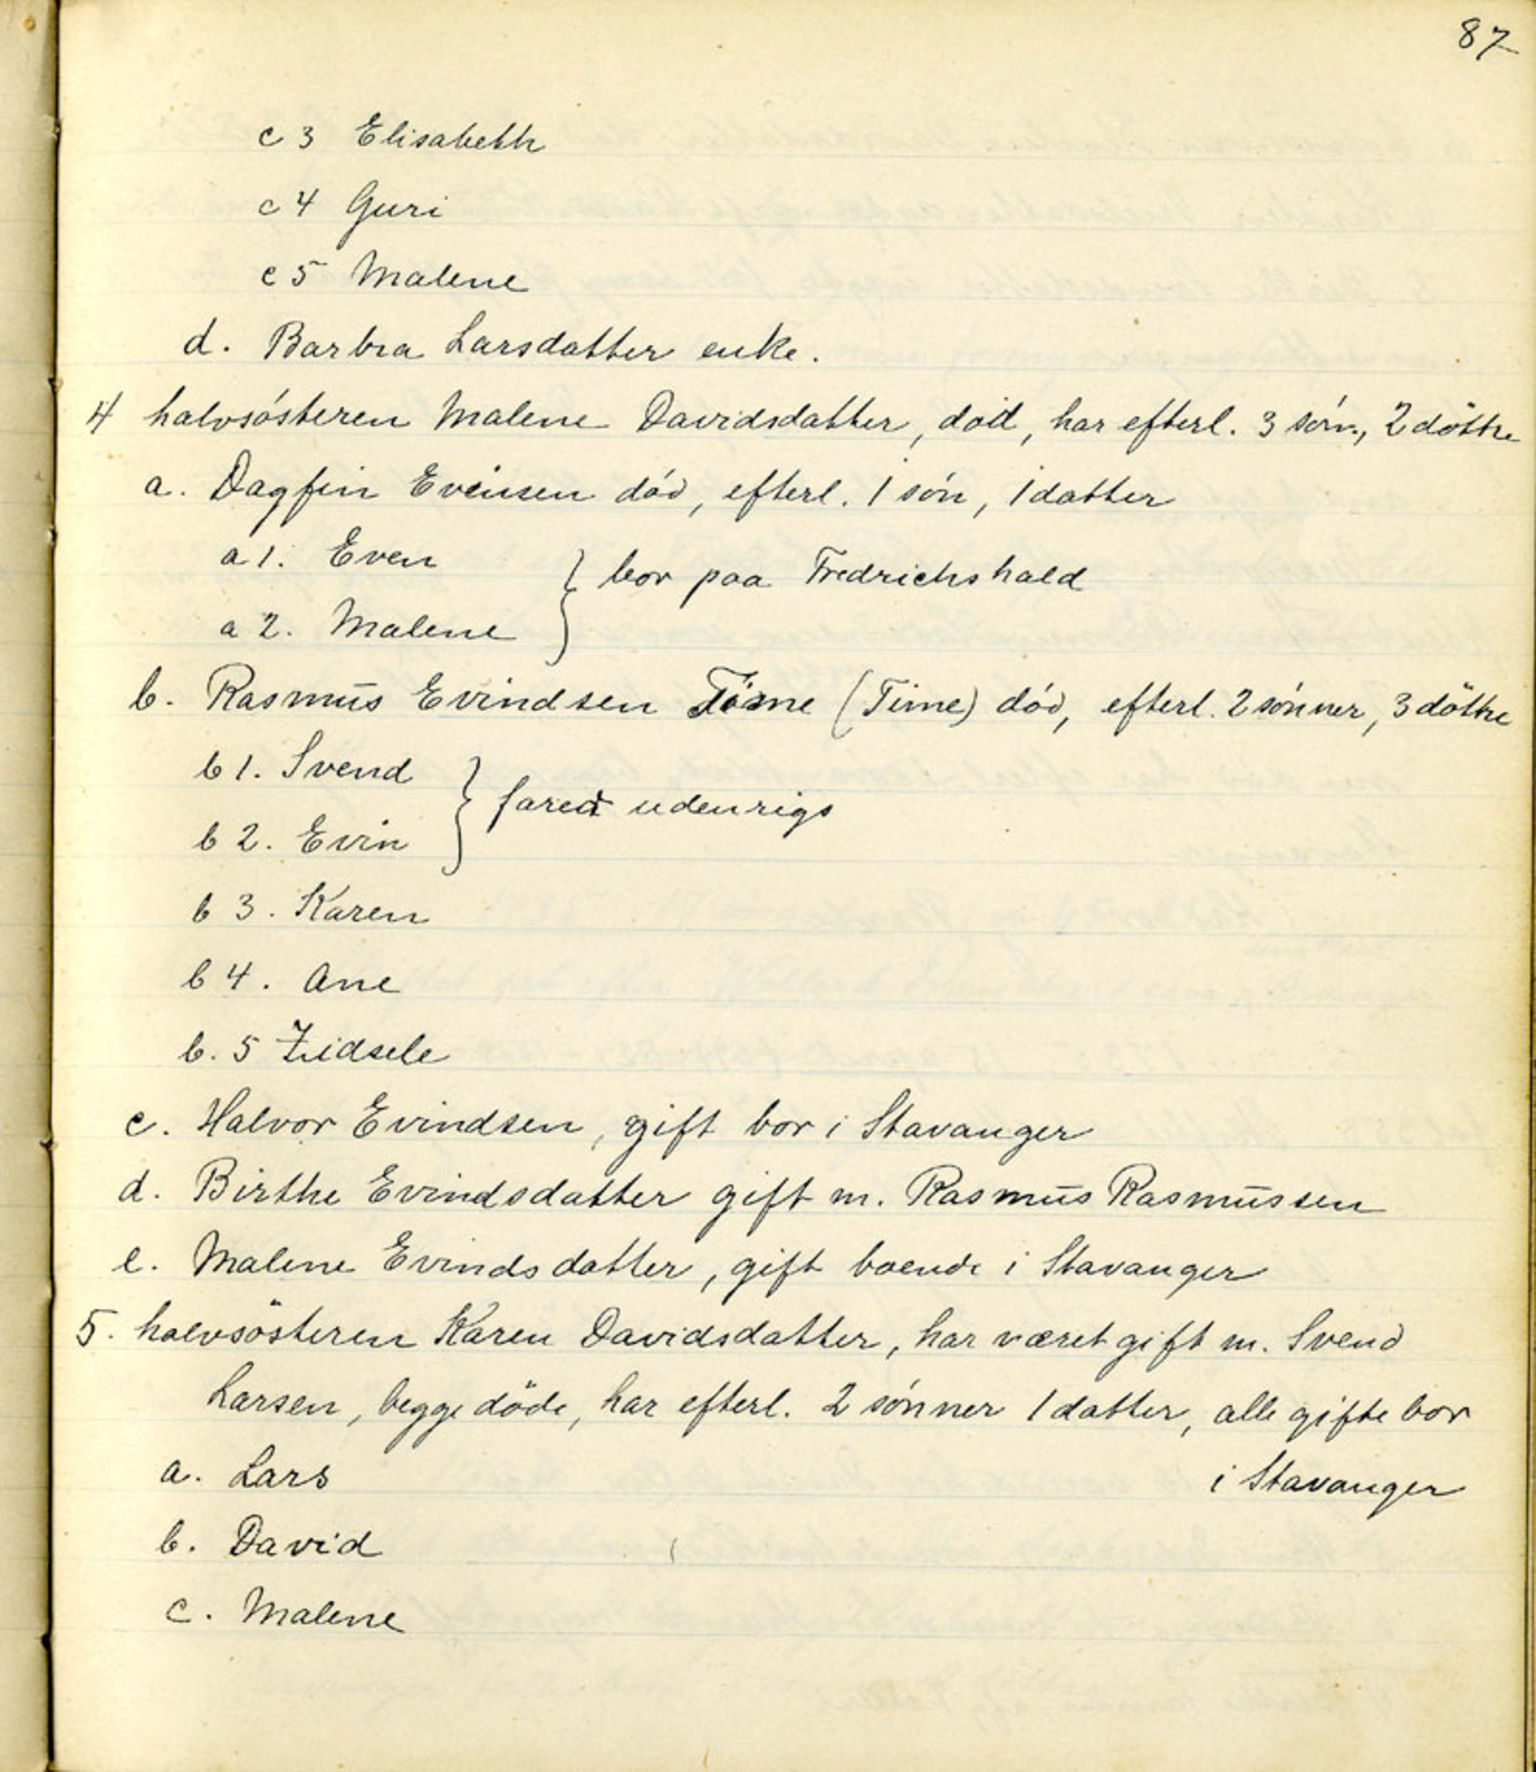 87
c 3 Elisabeth
c 4 Guri
c 5 Malene
d. Barbra Larsdatter enke.
4 halvsósteren Malene Davidsdatter, död, har efterl. 3 sön., 2 döttre
a. Dagfin Evensen död, efterl. 1 són, 1 datter
a 1. Even } bor paa Fredrichshald
a 2. Malene
b. Rasmūs Evindsen (Time) död, efterl. 2 sónner, 3 döttre
b 1. Svend } faret udenrigs
b 2. Evin
b 3. Karen
b 4. Ane
b. 5 Zidsele
c. Halvor Evindsen, gift bor i Stavanger
d. Birthe Evindsdatter gift m. Rasmūs Rasmūssen
e. Malene Evindsdatter, gift boende i Stavanger
5. halvsösteren Karen Davidsdatter, har været gift m. Svend
Larsen, begge döde, har efterl. 2 sónner 1 datter, alle gifte bor
i Stavanger
a. Lars
b. David
c. Malene